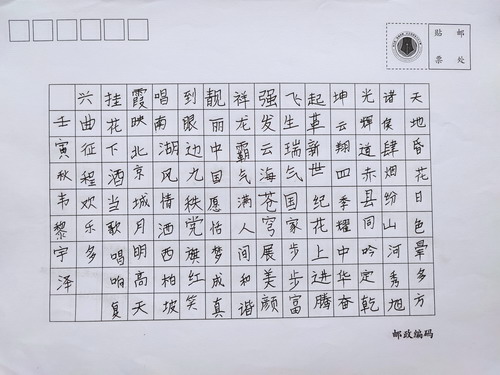 贴邮
票处
天地昏花日色晕多方
诸侯肆烟纷山河秀旭
光辉道赤县同吟定乾
坤云翔四季耀中华奋
起革新世纪花上进腾
飞生瑞气国家步步富
强发云海苍穹展美颜
祥龙霸气满人间和谐
靓丽中国愿怡梦成真
到眼边九秩党旗红笑
唱南湖风情洒西柏坡
霞映北京城月明高天
挂花下酒当歌唱咱复
兴曲征程欢乐多
壬寅秋韦黎宇泽
邮政编码